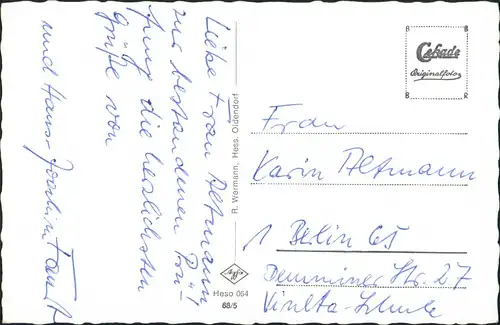 Liebe Frau Altmann
zur bestandenen Prü-
fung die herzlichsten
Grüße von
und Hans-Joachim
R. Wermann, Hess. Oldendorf
Agfa
Heso 064
68/5
B B
Cekade
Originalfoto
B R
Frau
Karin Altmann
1 Berlin 65
Demminer Str. 27
Vineta-Schule